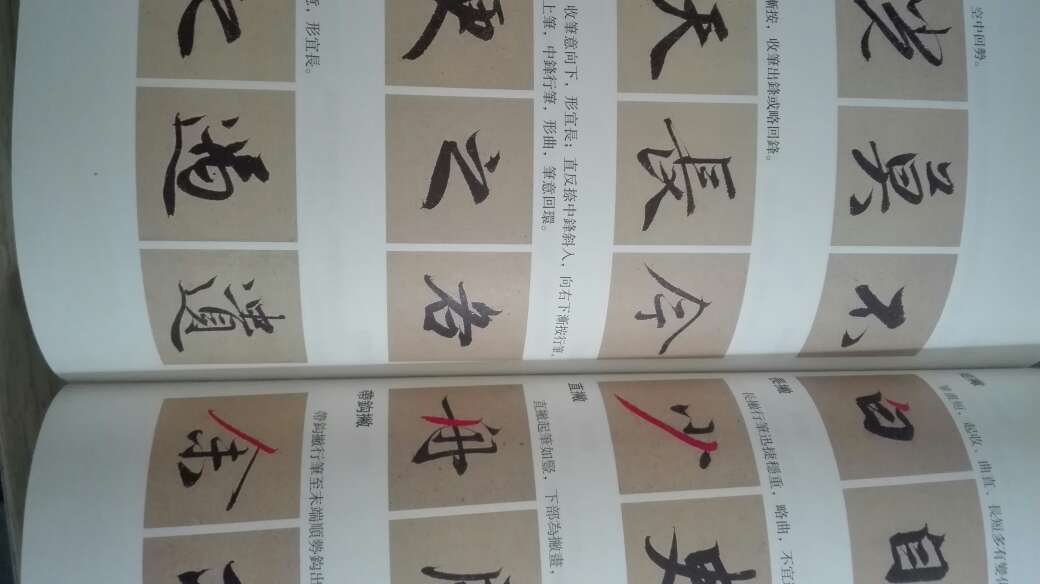 空中回勢。
吳
不
漸按，收筆出鋒或略回鋒。
天
長
今
收筆意向下，形宜長；直反捺中鋒斜入，向右下漸按行筆，
上筆，中鋒行筆，形曲，筆意回環。
之
意，形宜長。
道
起收、曲直、長短多有變化
白
自
長撇
長撇行筆迅捷穩重，略曲，不宜
少
直撇
直撇起筆如豎，下部為撇畫，
帶鈎撇
帶鈎撇行筆至末端順勢鈎出